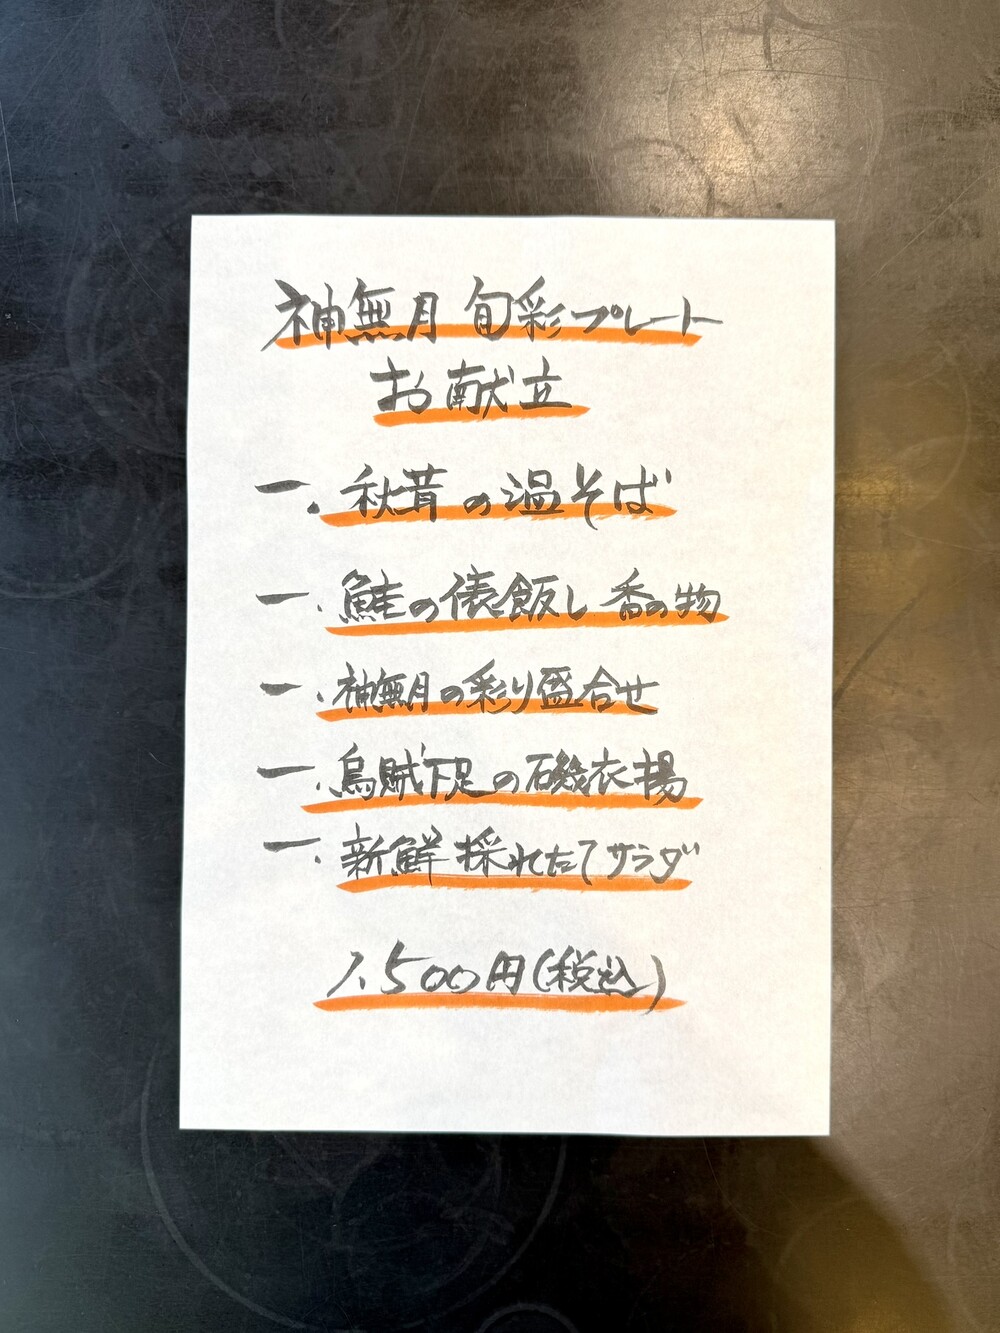 神無月 旬彩プレート
お献立
一. 秋茸の温そば
一. 鮭の俵飯し 香の物
一. 神無月の彩り盛合せ
一. 烏賊下足の磯衣揚
一. 新鮮 採れたてサラダ
1,500円(税込)